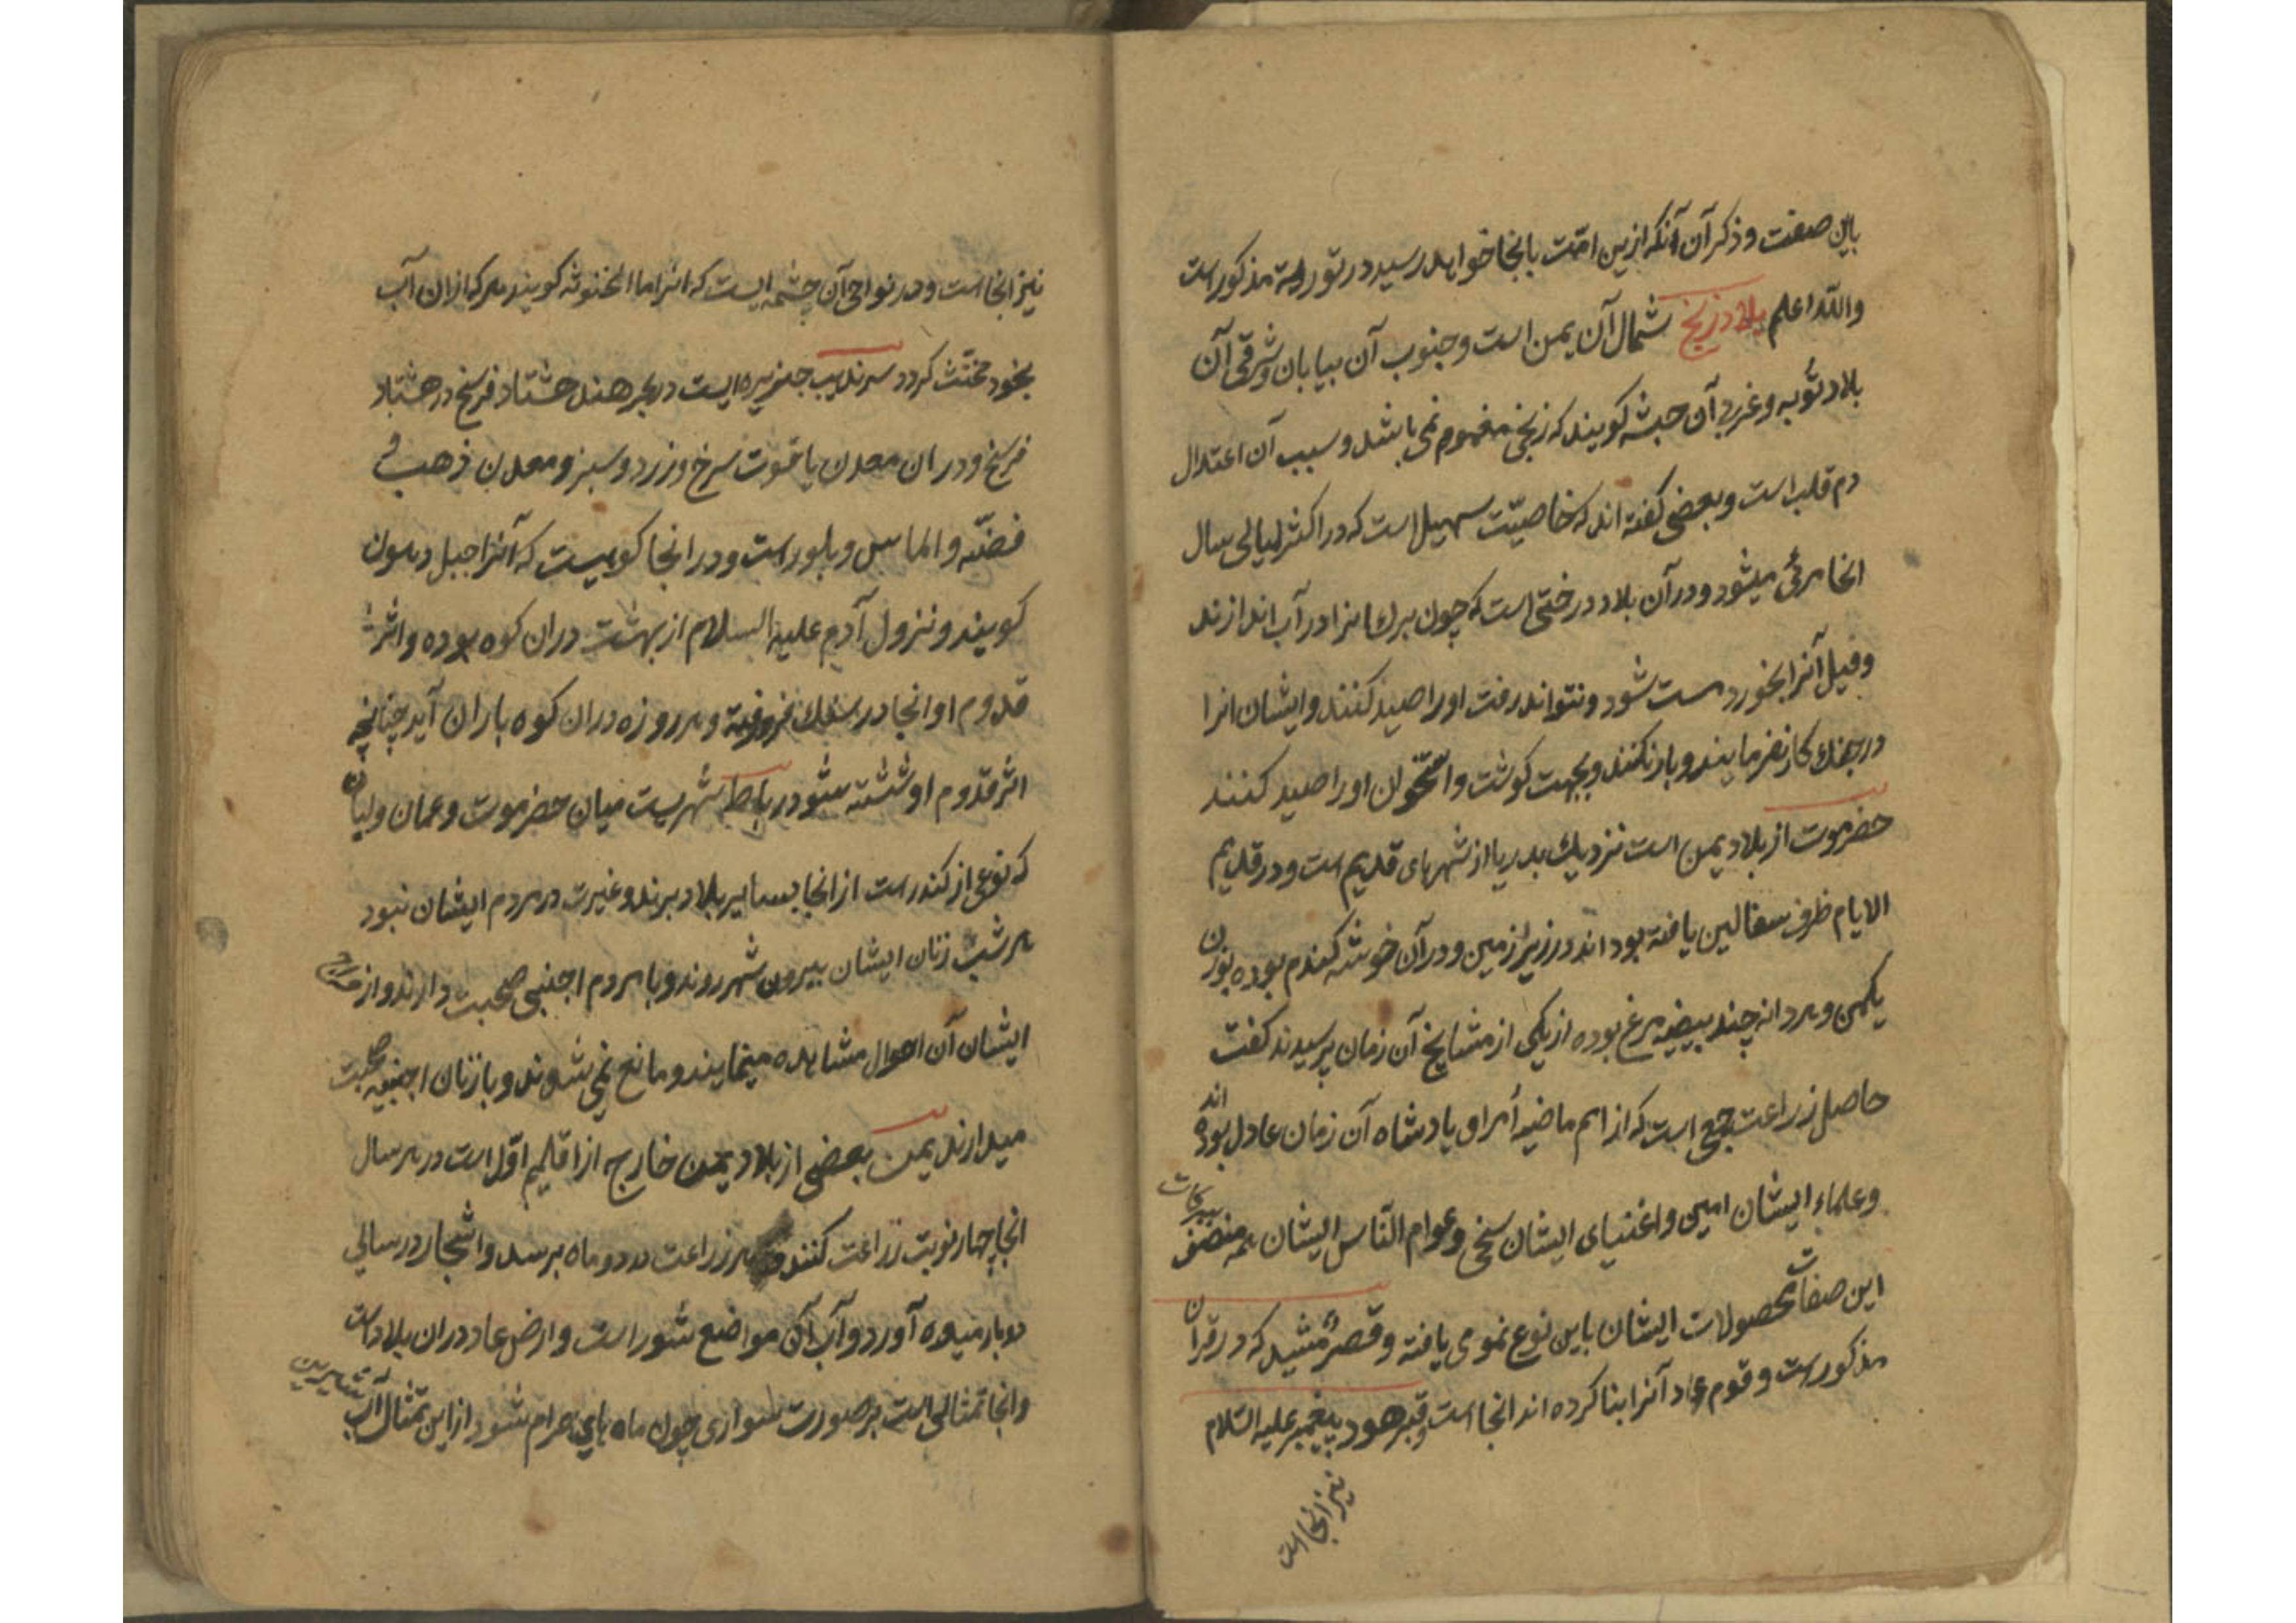 باین صفت و ذکر آن آنکه ازین امّت بانجا خواهد رسید در توریة مذکورست
والله اعلم بلاد زنج شمال آن یمن است و جنوب آن بیابان و شرقی آن
بلاد نوبه و غربی آن حبشه کویند که زنجی مفهوم نمی باشد و سبب آن اعتدال
دم قلب است و بعضی کفته اند که خاصیّت سهیل است که در اکثر لیالی سال
انجا مرئی میشود و در آن بلاد درختی است که چون برک انرا در آب اندازند
و فیل آنرا بخورد مست شود و نتواند رفت او را صید کنند و ایشان انرا
در جنک کار نفرمایند و بار نکنند و بجهت کوشت و استخوان او را صید کنند
حضرموت از بلاد یمن است نزدیک بدریا از شهرهای قدیم است و در قدیم
الایام ظرف سفالین یافته بود اند در زیر زمین و در آن خوشه کندم بوده بوزن
یکمن و هر دانه چند بیضه مرغ بوده از یکی از مشایخ آن زمان پرسیدند کفت
حاصل زراعت جمعی است که از امم ماضیه امرا و پادشاه آن زمان عادل بوده اند
و علماء ایشان امین و اغنیای ایشان سخی و عوام النّاس ایشان همه منصف ببرکات
این صفات محصولات ایشان باین نوع نمو می یافته و قصر مشید که در قران
مذکورست و قوم عاد آنرا بنا کرده اند انجا است و قبر هود پیغمبر علیه السّلام
نیز انجا است
نیز انجا است و در نواحی آن چشمه ایست که انرا ماء المخنوثه کویند هر که از ان آب
بخورد مخنّث کردد سرندیب جزیره ایست در بحر هند هشتاد فرسخ در هشتاد
فرسخ و در ان معدن یاقوت سرخ و زرد و سبز و معدن ذهب و
فضّه و الماس و بلور است و در انجا کوهیست که آنرا جبل دهون
کویند و نزول آدم علیه السلام از بهشت دران کوه بوده و اثر
قدوم او انجا در سنک فرورفته و هر روزه دران کوه باران آید چنانچه
اثر قدوم او شسته شود رباط شهریست میان حضرموت و عمان و لبان
که نوعی از کندر است از انجا بسایر بلاد برند و غیرت در مردم ایشان نبود
هر شب زنان ایشان بیرون شهر روند و با مردم اجنبی صحبت دارند و ازواج
ایشان آن احوال مشاهده مینمایند و مانع نمی شوند و با زنان اجنبیه صحبت
میدارند یمن بعضی از بلاد یمن خارج از اقلیم اوّل است در هر سال
انجا چهار نوبت زراعت کنند و هر زراعت در دو ماه برسد و اشجار در سالی
دوبار میوه آورد و آب آن مواضع شور است و ارض عاد دران بلاد است
و انجا تمثالی است بر صورت سواری چون ماه های حرام شود از این تمثال آب شیرین